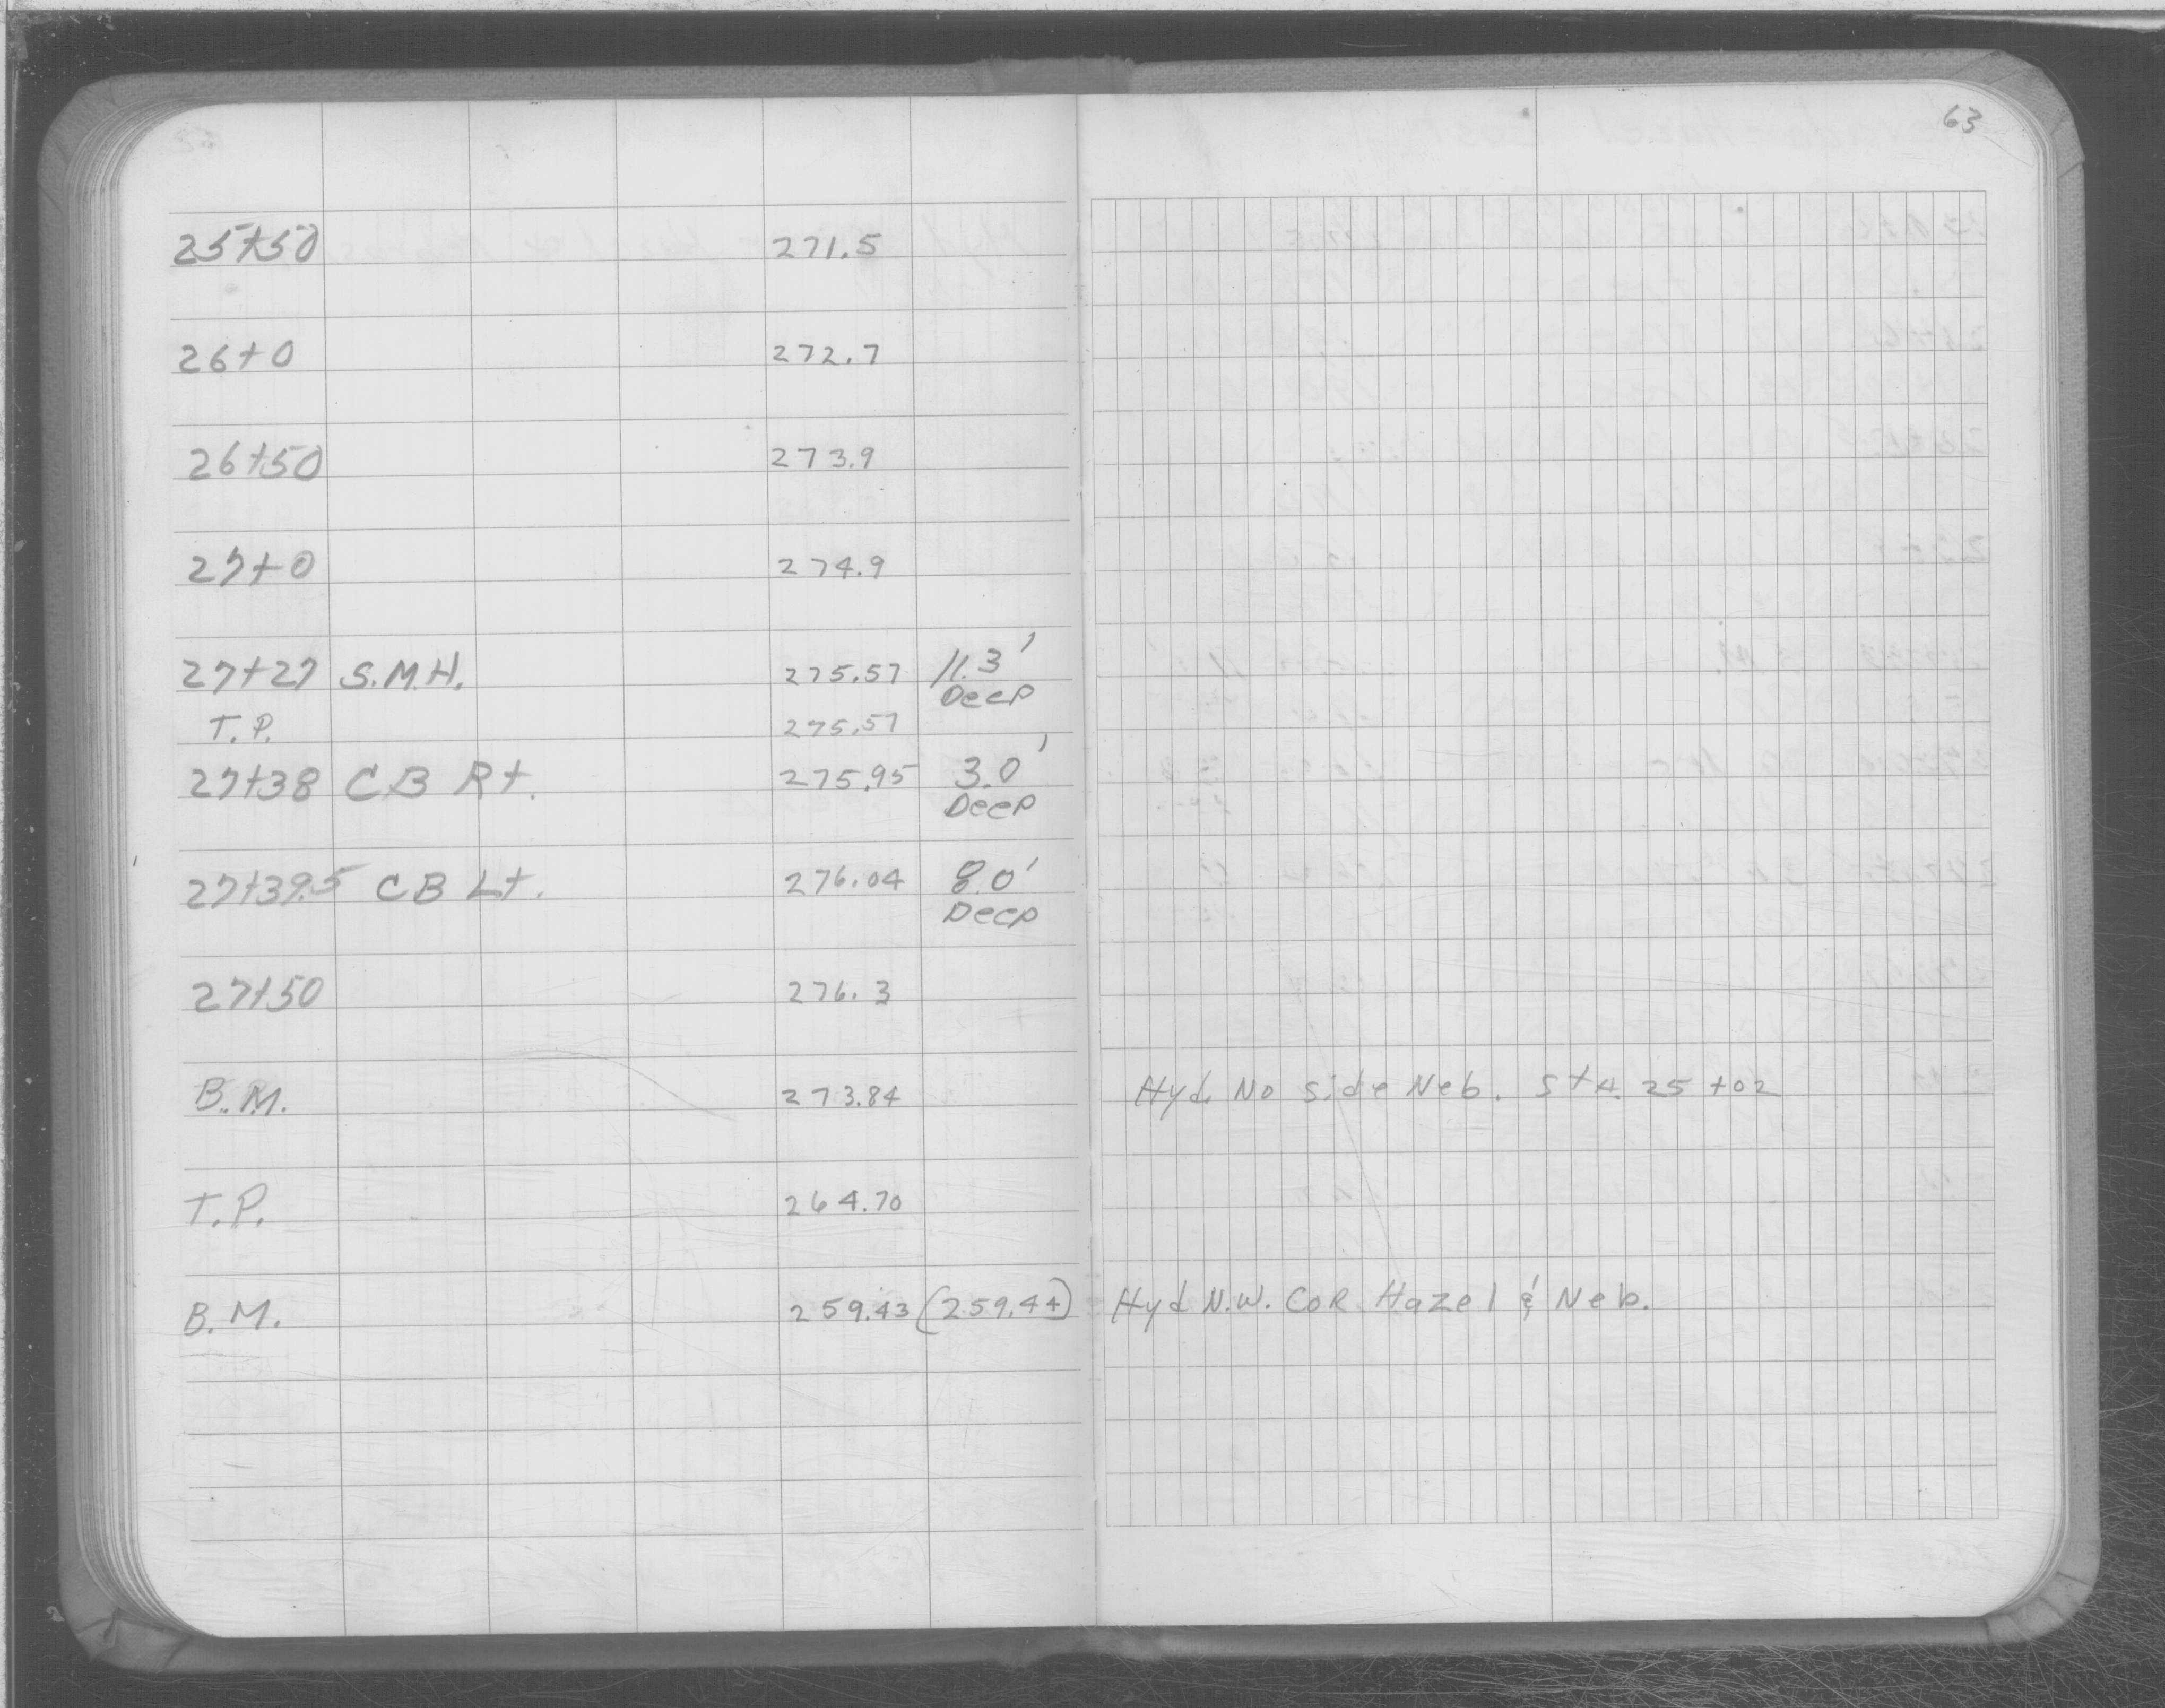 63
25+50 271.5
26+0 272.7
26+50 273.9
27+0 274.9
27+27 S.M.H. 275.57 11.3'
Deep
T.P. 275.57
27+38 CB Rt. 275.95 3.0'
Deep
27+39.5 CB Lt. 276.04 8.0'
Deep
27+50 276.3
B.M. 273.84 Hyd. No side Neb. Sta. 25+02
T.P. 264.70
B.M. 259.43 (259.44) Hyd N.W. COR Hazel & Neb.